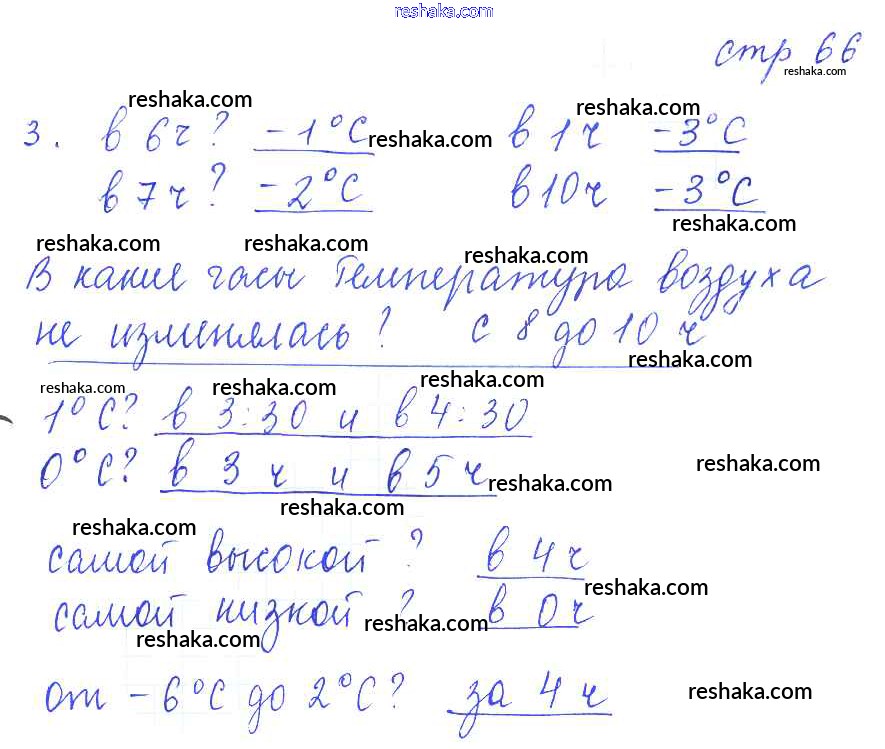 reshaka.com
стр 66
reshaka.com
reshaka.com reshaka.com
3. в 6ч? -1°С reshaka.com в 1ч -3°С
в 7ч? -2°С в 10ч -3°С
reshaka.com
reshaka.com reshaka.com reshaka.com
В какие часы температура воздуха
не изменялась? с 8 до 10 ч
reshaka.com
reshaka.com reshaka.com reshaka.com
1°С? в 3:30 и в 4:30
0°С? в 3 ч и в 5 ч
reshaka.com
reshaka.com
reshaka.com
reshaka.com
самой высокой? в 4ч
reshaka.com
самой низкой? в 0ч
reshaka.com reshaka.com
от -6°С до 2°С? за 4 ч reshaka.com